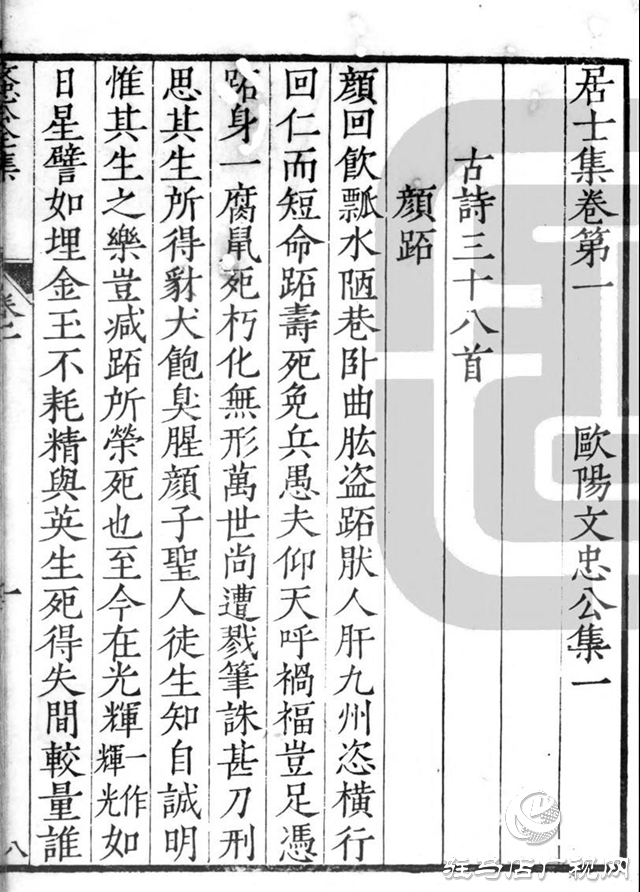 居士集卷第一 歐陽文忠公集一
古詩三十八首
顏跖
顏回飲瓢水陋巷卧曲肱盗跖肰人肝九州恣橫行
回仁而短命跖壽死免兵愚夫仰天呼禍福豈足憑
跖身一腐鼠死朽化無形萬世尚遭戮筆誅甚刀刑
思其生所得豺犬飽臭腥顏子聖人徒生知自誠明
惟其生之樂豈减跖所榮死也至今在光輝一作輝光如
日星譬如埋金玉不耗精與英生死得失間較量誰
卷一
一
八
驻马店广视网